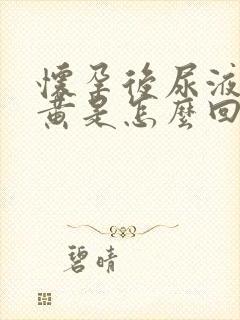 懷孕後尿液
黃是怎麼回
碧晴